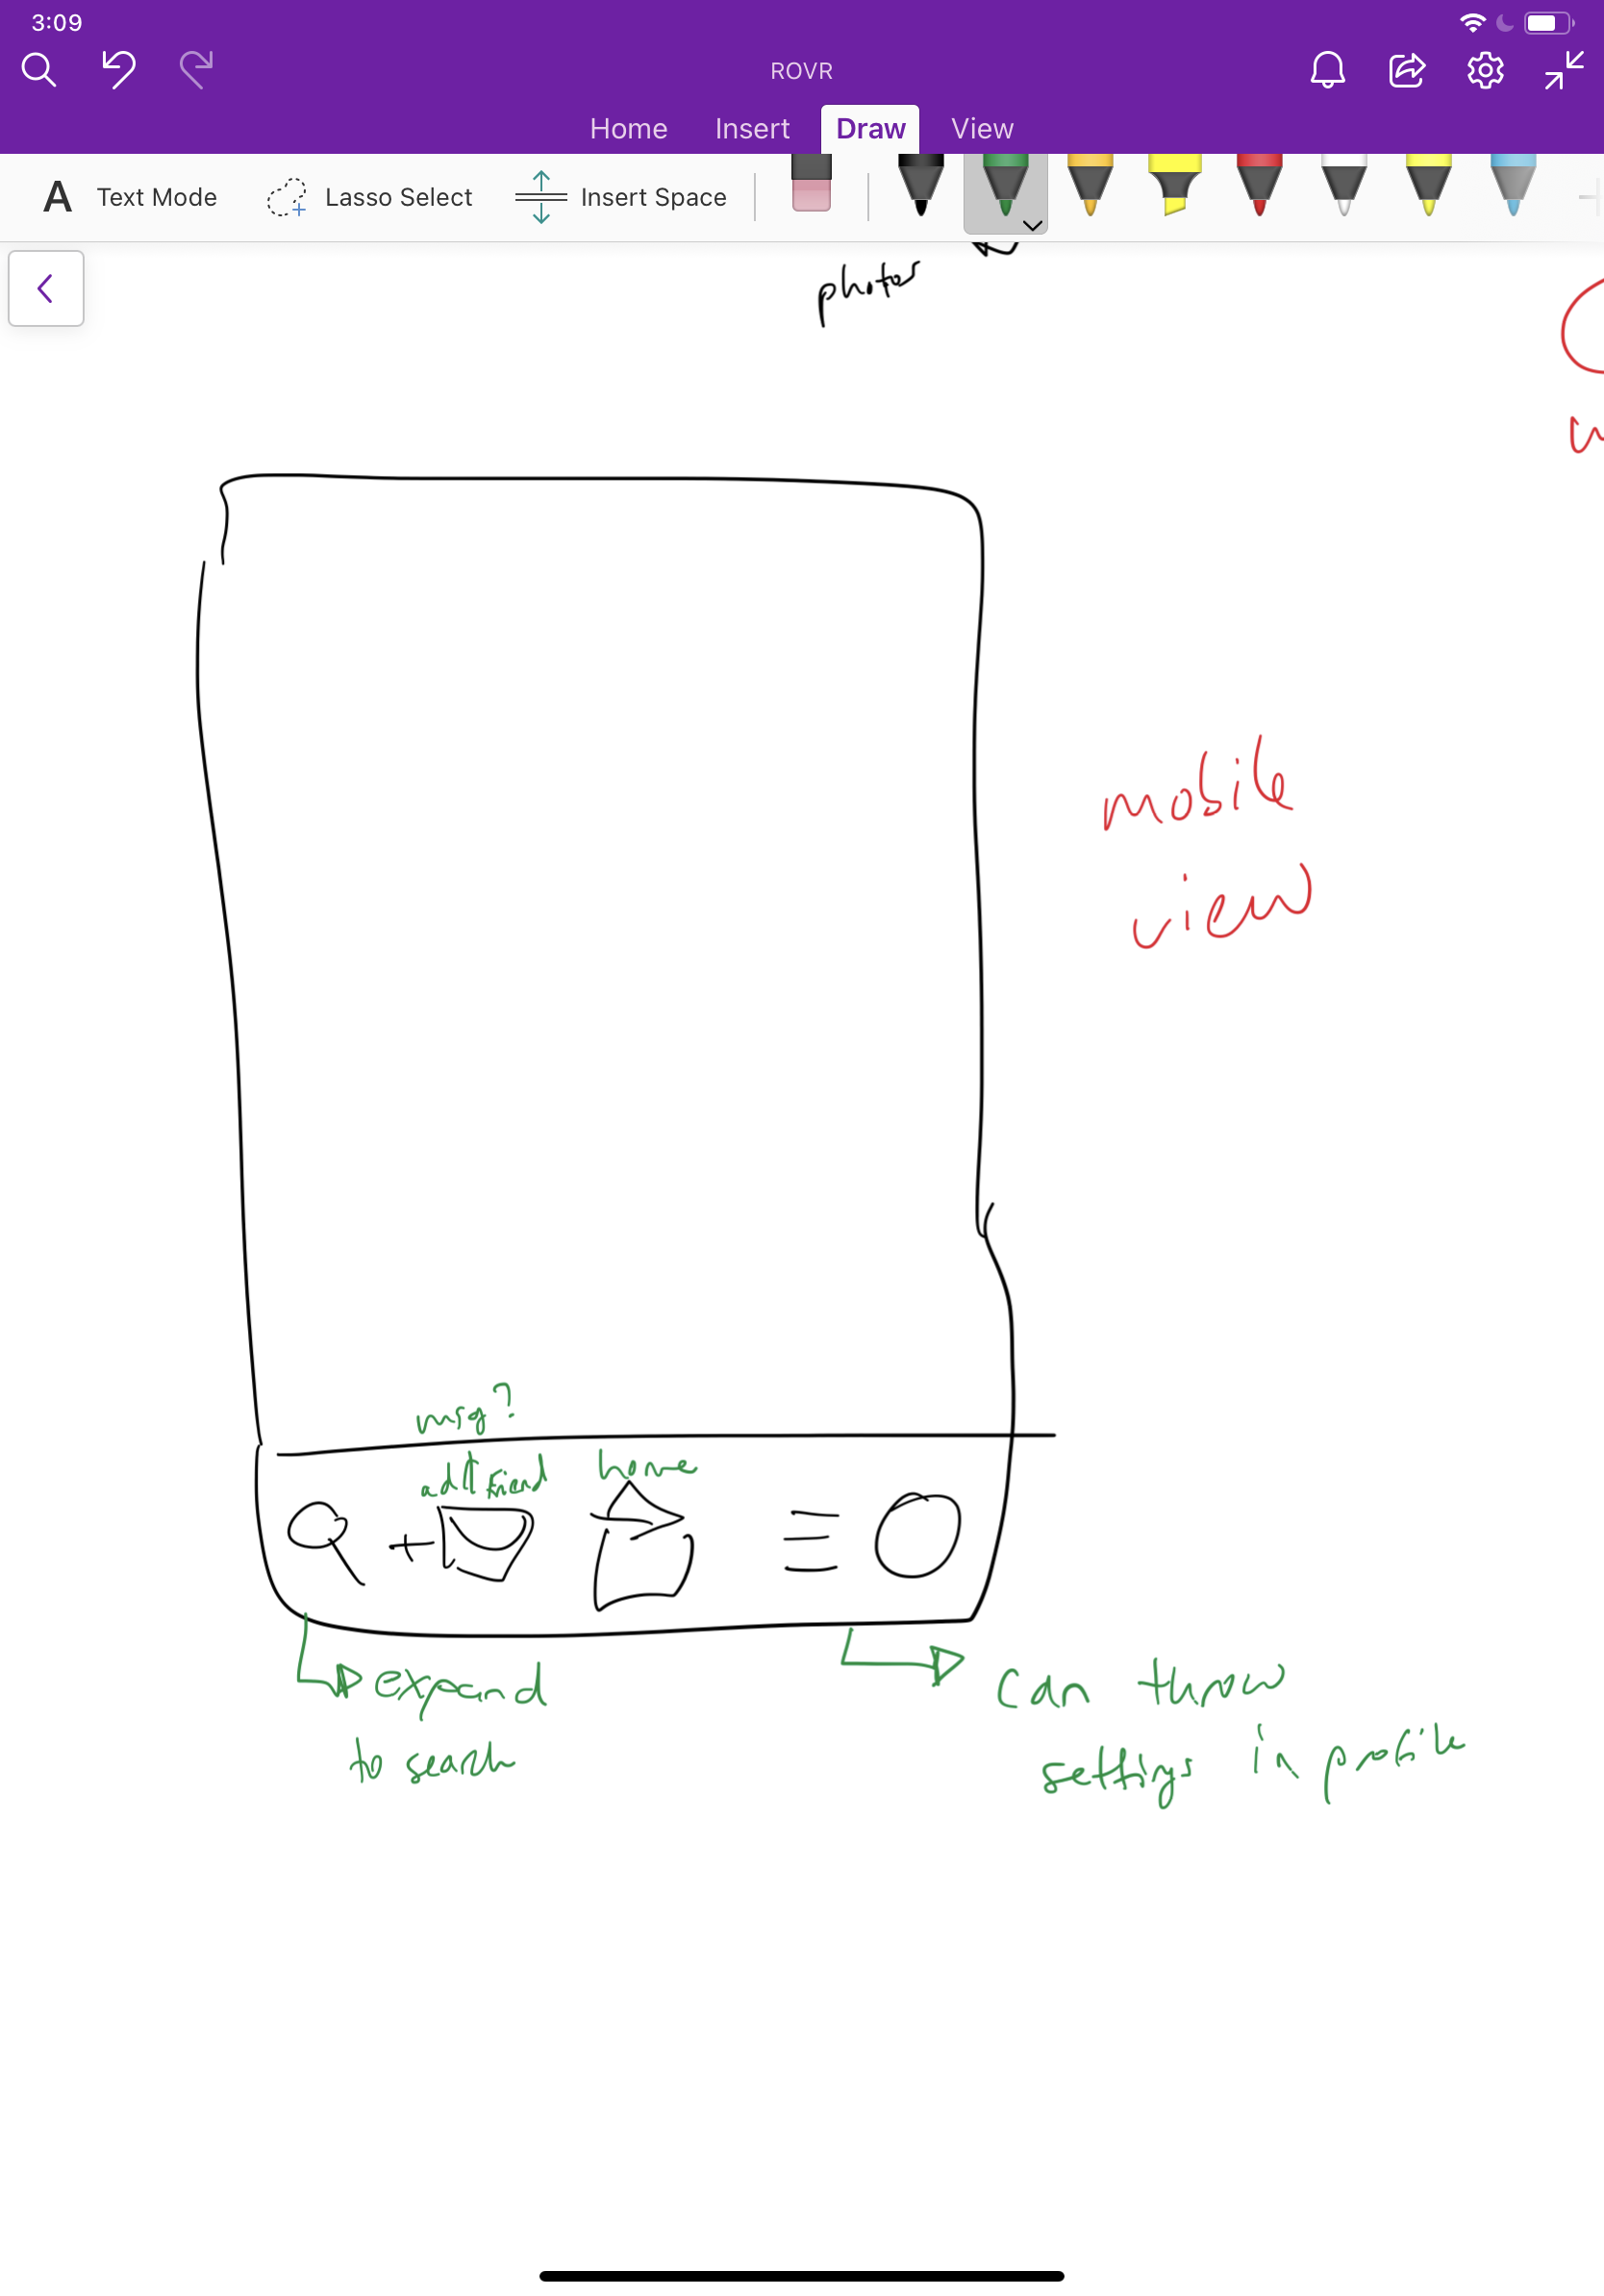 3:09
ROVR
Home Insert Draw View
A Text Mode Lasso Select Insert Space
photos
mobile
view
msg?
add friend
home
expand
to search
can throw
settings in profile